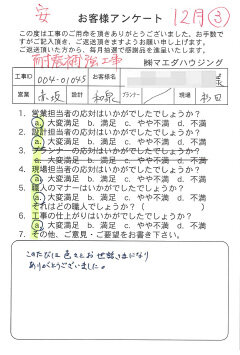 安
お客様アンケート
12月③
この度は工事のご用命を頂きありがとうございました。お手数で
すがご記入頂き、ご返送頂きますようお願い申し上げます。
ご返送頂いた方から、毎月抽選で感謝品を進呈いたします。
耐震補強工事
㈱マエダハウジング
工事ID 004-01045 お客様名 様
営業 赤坂 設計 和泉 プランナー 現場 杉田
1. 営業担当者の応対はいかがでしたでしょうか?
a. 大変満足 b. 満足 c. やや不満 d. 不満
2. 設計担当者の応対はいかがでしたでしょうか?
a. 大変満足 b. 満足 c. やや不満 d. 不満
3. プランナーの応対はいかがでしたでしょうか?
a. 大変満足 b. 満足 c. やや不満 d. 不満
4. 現場担当者の応対はいかがでしたでしょうか?
a. 大変満足 b. 満足 c. やや不満 d. 不満
5. 職人のマナーはいかがでしたでしょうか?
a. 大変満足 b. 満足 c. やや不満 d. 不満
それはどの職人でしょうか?( )
6. 工事の仕上がりはいかがでしたでしょうか?
a. 大変満足 b. 満足 c. やや不満 d. 不満
7. その他、ご意見・ご要望をお書き下さい。
このたびは色々とお世話になり
ありがとうございました。